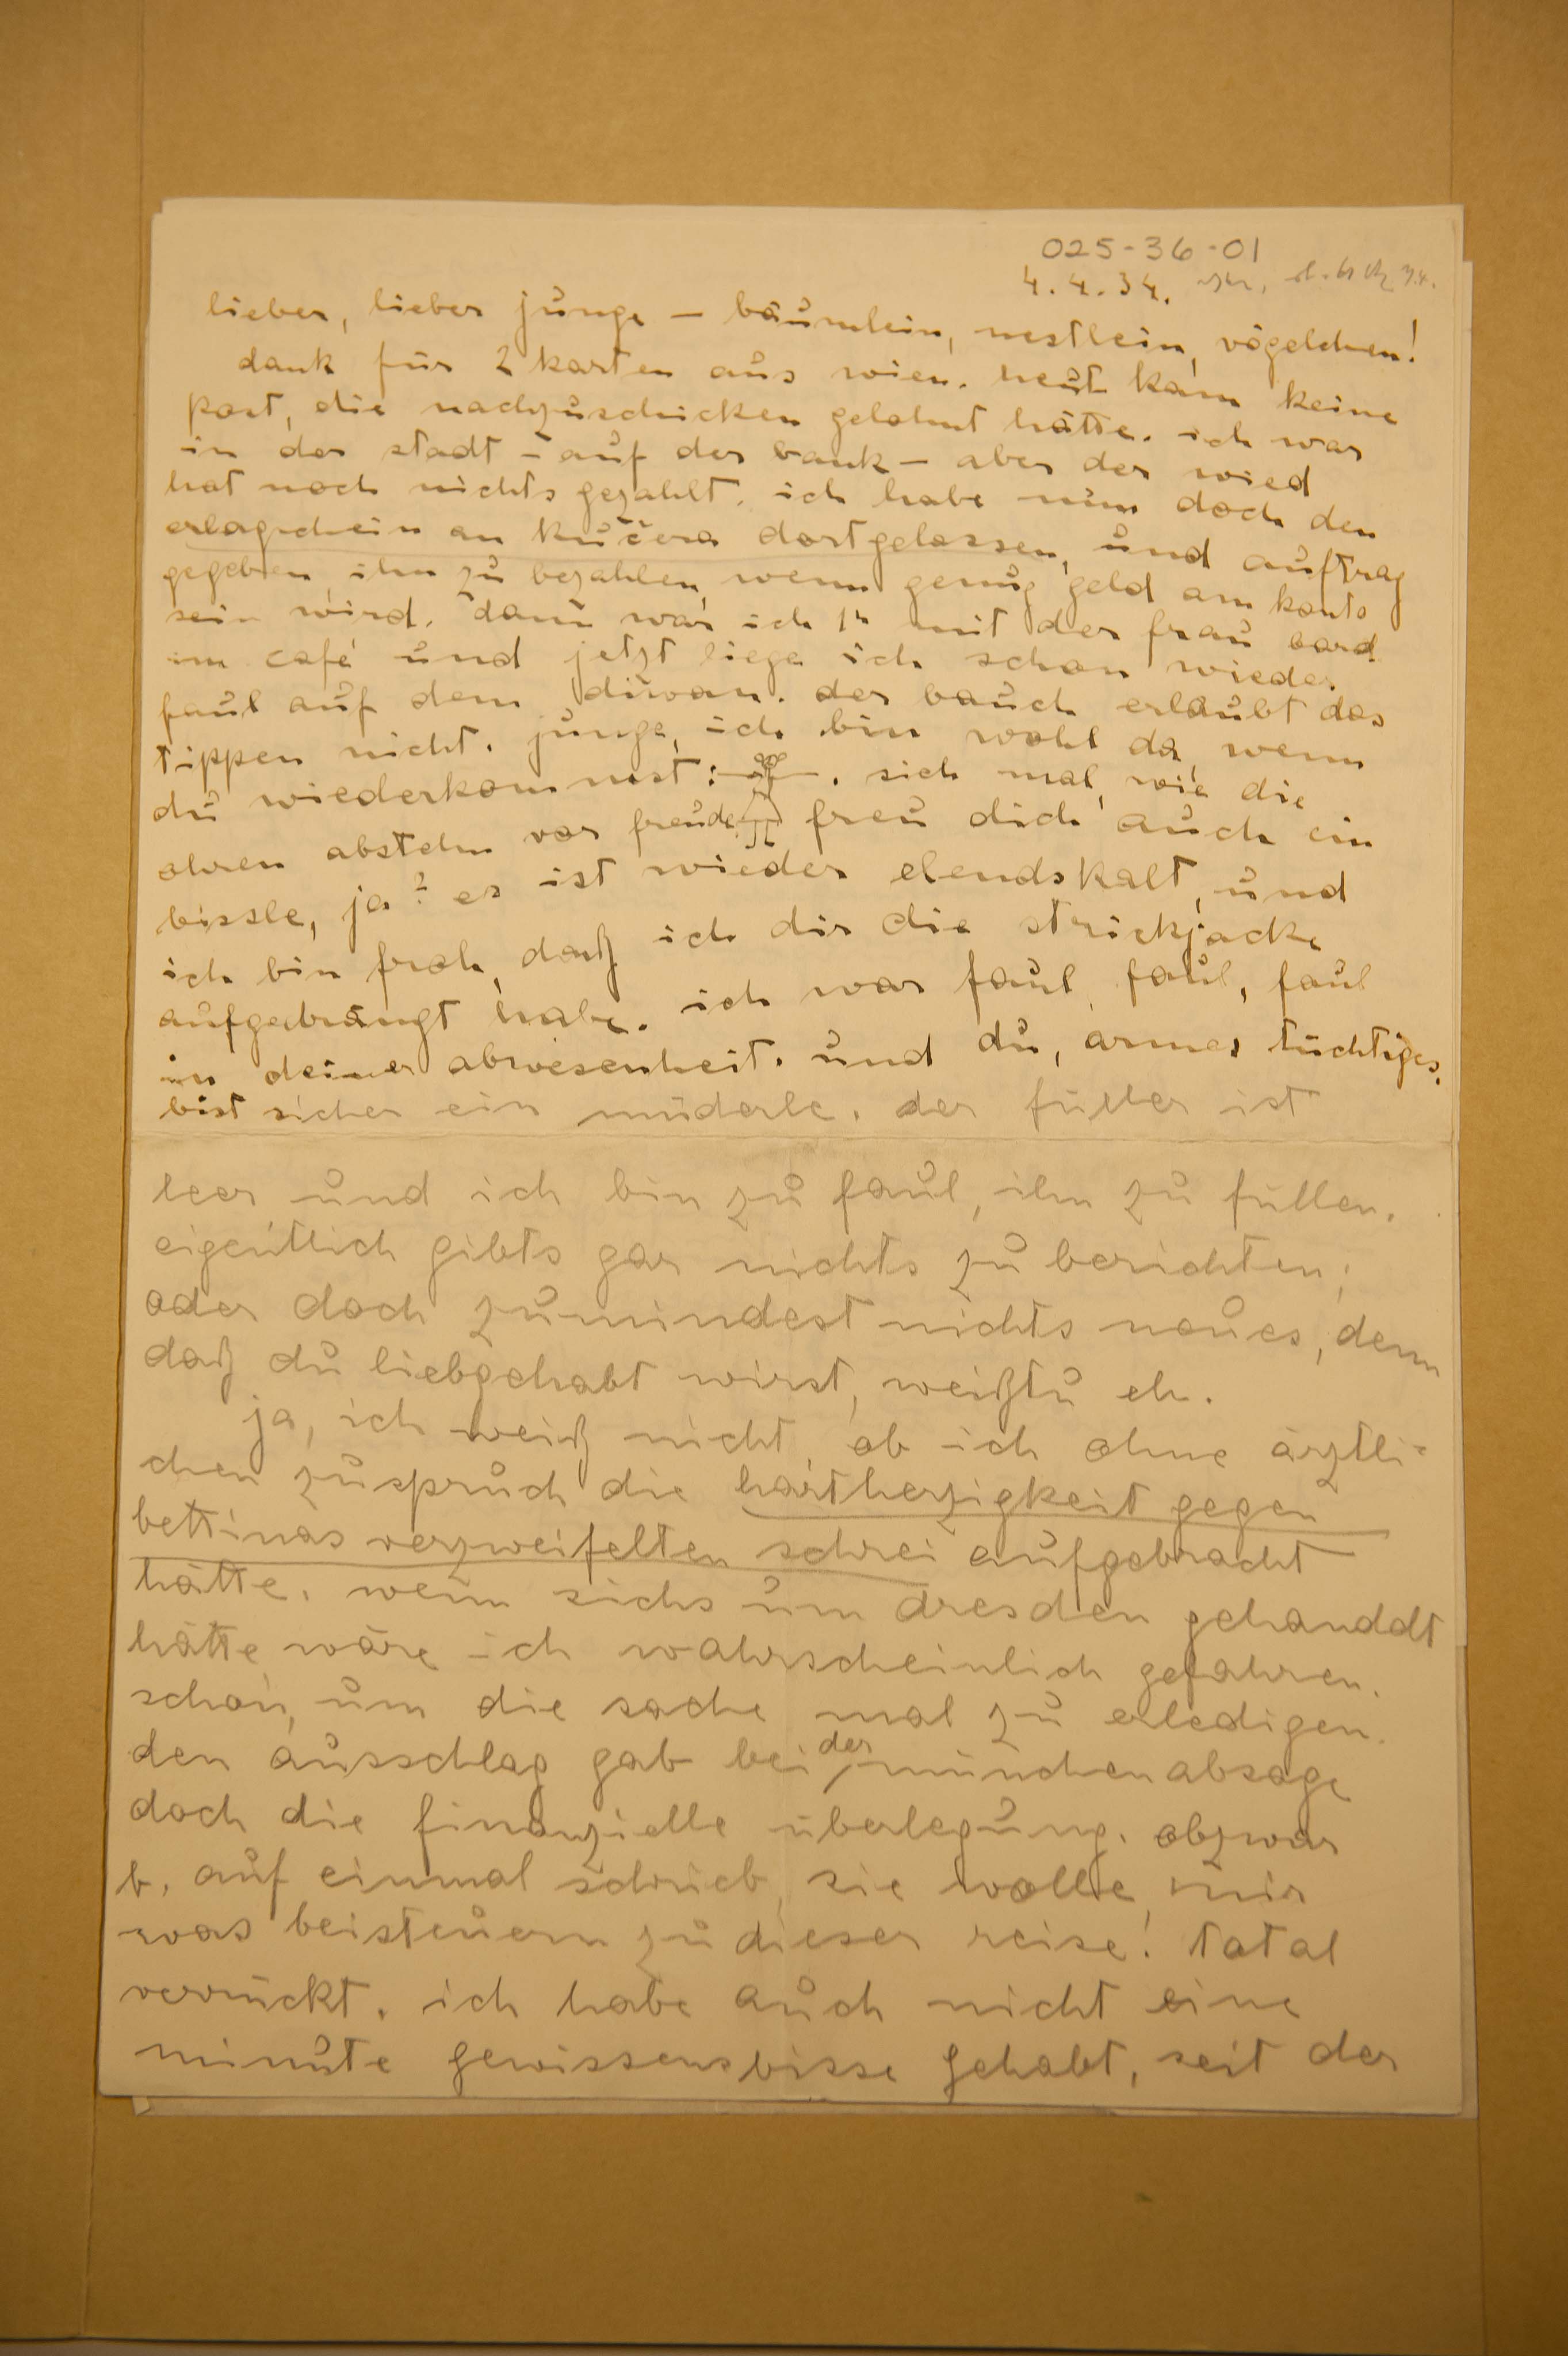 025-36-01
4.4.34.
lieber, lieber junge – bäumlein, nestlein, vögelchen!
dank für 2 karten aus wien. heut kam keine
post, die nachzuschicken gelohnt hätte. ich war
in der stadt – auf der bank – aber der wied
hat noch nichts gezahlt. ich habe nun doch den
erlagschein an kučera dortgelassen, und auftrag
gegeben, ihn zu bezahlen, wenn genug geld am konto
sein wird. dann war ich 1h mit der frau
im café und jetzt liege ich schon wieder
faul auf dem diwan. der bauch erlaubt das
tippen nicht. junge, ich bin wohl da, wenn
du wiederkommst: . sieh mal, wie die
ohren abstehn vor freude. freu dich auch ein
bissle, ja? es ist wieder elendskalt, und
ich bin froh, daß ich dir die strickjacke
aufgedrängt habe. ich war faul, faul, faul
in deiner abwesenheit. und du, armes tüchtiges,
bist sicher ein müderle. der füller ist
leer und ich bin zu faul, ihn zu füllen.
eigentlich gibts gar nichts zu berichten;
oder doch zumindest nichts neues, denn
daß du liebgehabt wirst, weißtu eh.
ja, ich weiß nicht, ob ich ohne ärztli-
chen zuspruch die hartherzigkeit gegen
bettinas verzweifelten schrei aufgebracht
hätte. wenn sichs um dresden gehandelt
hätte, wäre ich wahrscheinlich gefahren.
schon, um die sache mal zu erledigen.
den ausschlag gab bei der münchenabsage
doch die finanzielle überlegung. obzwar
b. auf einmal schrieb, sie wolle mir
was beisteuern zu dieser reise! total
verrückt. ich habe auch nicht eine
minute gewissensbisse gehabt, seit der